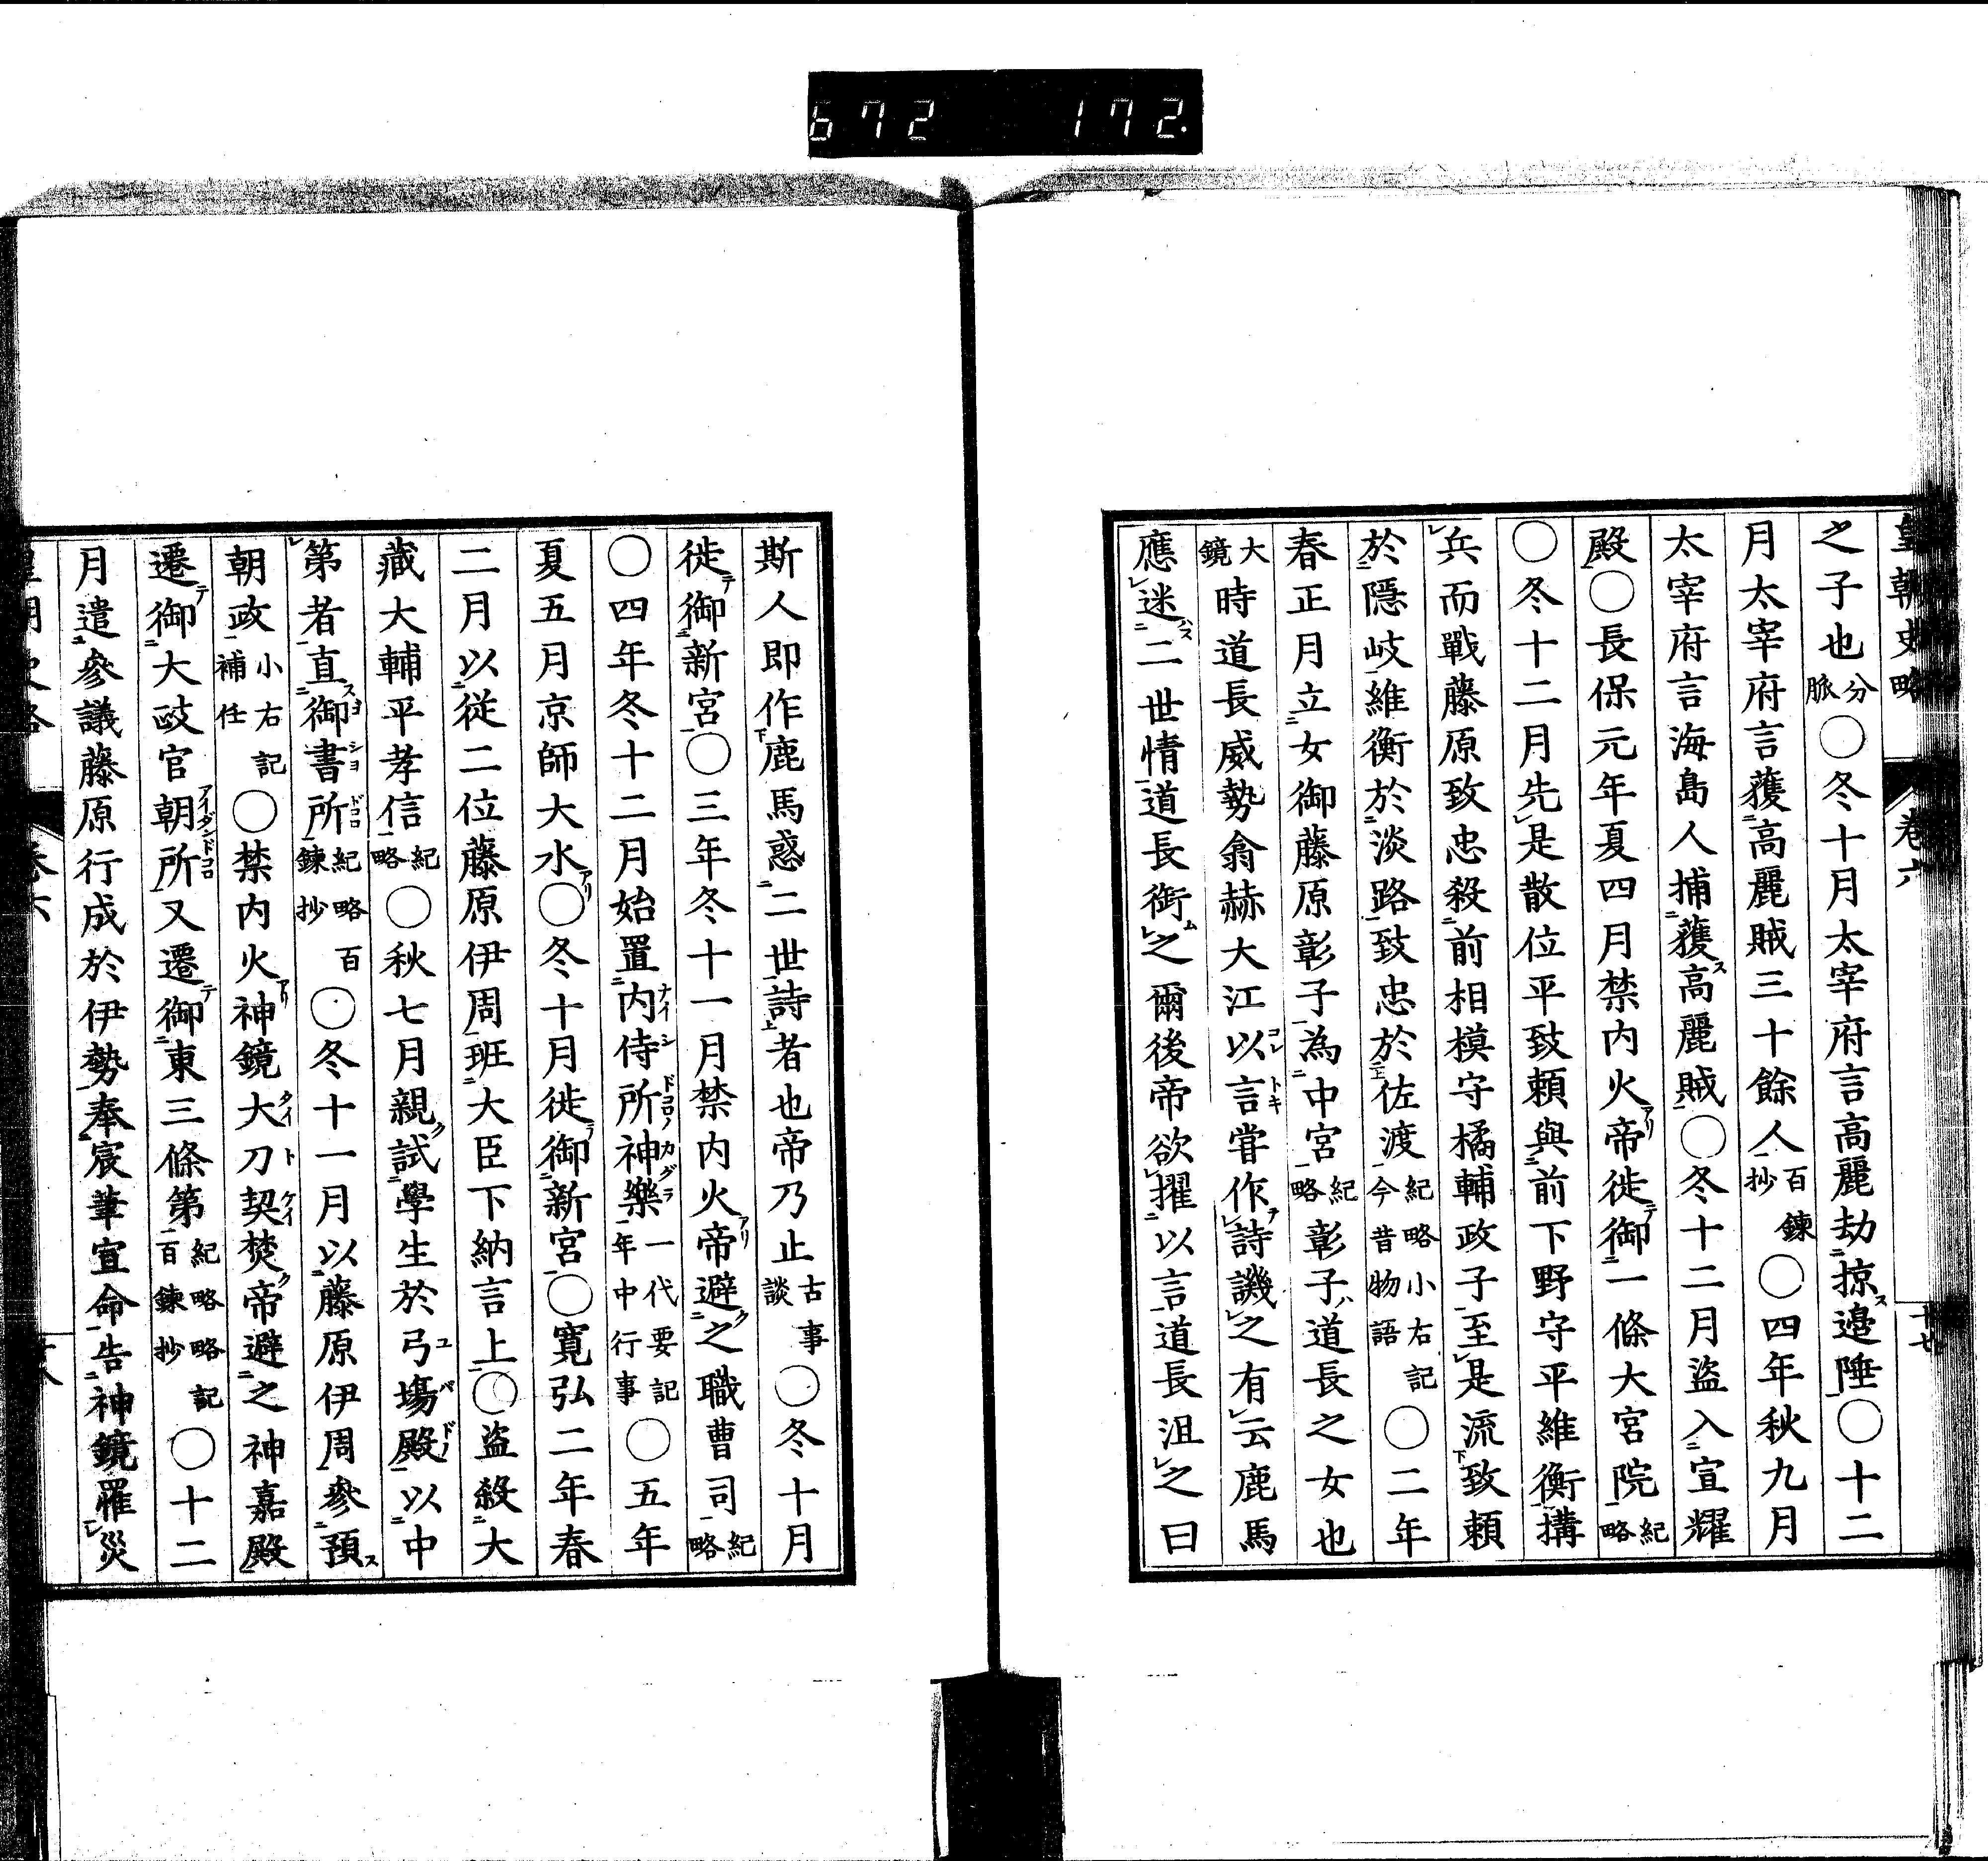 672 172.
皇朝史略 卷六 十七
之子也分脈〇冬十月太宰府言高麗劫掠邊陲〇十二
月太宰府言獲高麗賊三十餘人百鍊抄〇四年秋九月
太宰府言海島人捕獲高麗賊〇冬十二月盜入宣耀
殿〇長保元年夏四月禁内火帝徙御一條大宮院紀略
〇冬十二月先是散位平致頼與前下野守平維衡搆
兵而戰藤原致忠殺前相模守橘輔政子至是流致頼
於隱岐維衡於淡路致忠於佐渡紀略小右記今昔物語〇二年
春正月立女御藤原彰子為中宮紀略彰子道長之女也
大鏡時道長威勢翕赫大江以言嘗作詩譏之有云鹿馬
應迷二世情道長銜之爾後帝欲擢以言道長沮之曰
斯人即作鹿馬惑二世詩者也帝乃止古事談〇冬十月
徙御新宮〇三年冬十一月禁内火帝避之職曹司紀略
〇四年冬十二月始置内侍所神樂一代要記年中行事〇五年
夏五月京師大水〇冬十月徙御新宮〇寛弘二年春
二月以從二位藤原伊周班大臣下納言上〇盜殺大
藏大輔平孝信紀略〇秋七月親試學生於弓場殿以中
第者直御書所紀略百鍊抄〇冬十一月以藤原伊周參預
朝政小右記補任〇禁内火神鏡大刀契焚帝避之神嘉殿
遷御大政官朝所又遷御東三條第紀略略記百鍊抄〇十二
月遣參議藤原行成於伊勢奉宸筆宣命告神鏡罹災